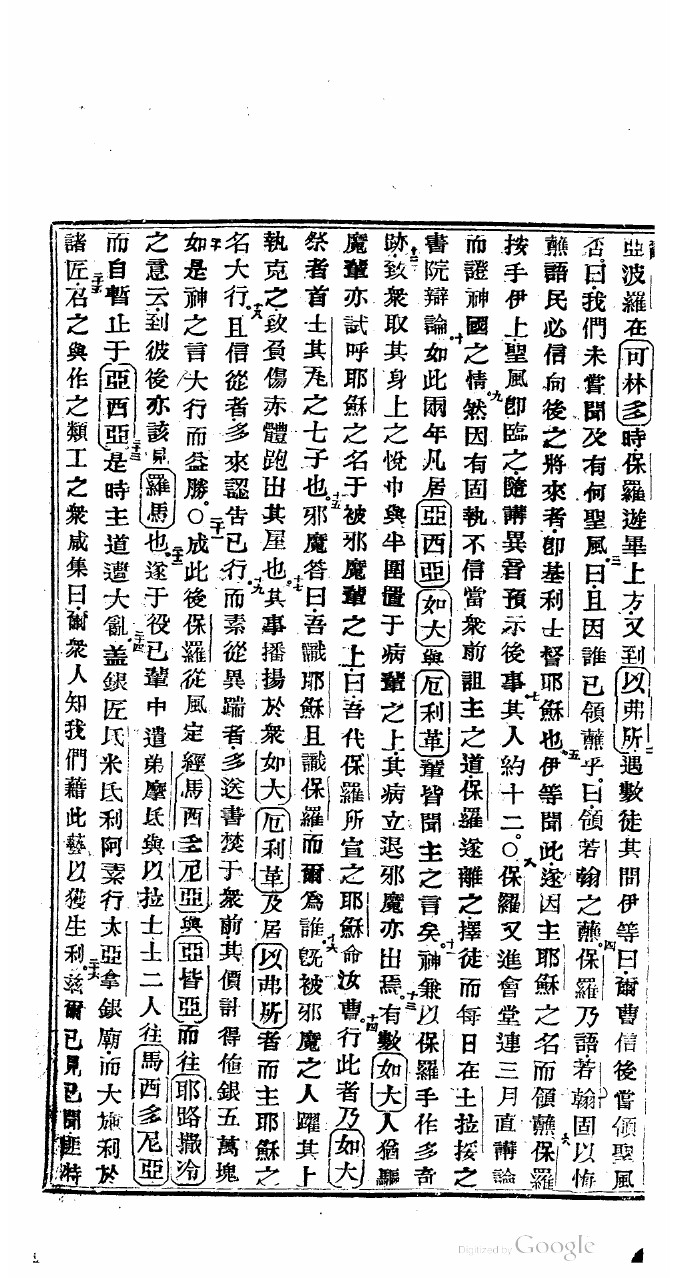 亞波羅在可林多時保羅遊畢上方又到以弗所遇數徒其問伊等曰爾曹信後嘗領聖風
否曰我們未嘗聞及有何聖風三曰且因誰已領蘸乎曰領若翰之蘸四保羅乃語若翰固以悔
蘸語民必信向後之將來者即基利士督耶穌也五伊等聞此遂因主耶穌之名而領蘸六保羅
按手伊上聖風即臨之隨講異音預示後事七其人約十二〇八保羅又進會堂連三月直講論
而證神國之情九然因有固執不信當衆前詛主之道保羅遂離之擇徒而每日在士拉接之
書院辯論十如此兩年凡居亞西亞如大與厄利革輩皆聞主之言矣十一神兼以保羅手作多奇
跡十二致衆取其身上之帨巾與半圍置于病輩之上其病立退邪魔亦出焉十三有數如大人猶驅
魔輩亦試呼耶穌之名于被邪魔輩之上曰吾代保羅所宣之耶穌命汝曹十四行此者乃如大
祭者首士其瓦之七子也十五邪魔答曰吾識耶穌且識保羅而爾為誰十六旣被邪魔之人躍其上
執克之致負傷赤體跑出其屋也十七其事播揚於衆如大厄利革及居以弗所者而主耶穌之
名大行十八且信從者多來認告已行十九而素從異踹者多送書焚于衆前其價計得值銀五萬塊
二十如是神之言大行而益勝〇二十一成此後保羅從風定經馬西多尼亞與亞皆亞而往耶路撒冷
之意云到彼後亦該見羅馬也二十二遂于役己輩中遣弟摩氐與以拉士士二人往馬西多尼亞
而自暫止于亞西亞二十三是時主道遭大亂二十四盖銀匠氐米氐利阿素行太亞拿銀廟而大施利於
諸匠二十五召之與作之類工之衆咸集曰爾衆人知我們藉此藝以獲生利二十六茲爾已見已聞匪特
Digitized by Google